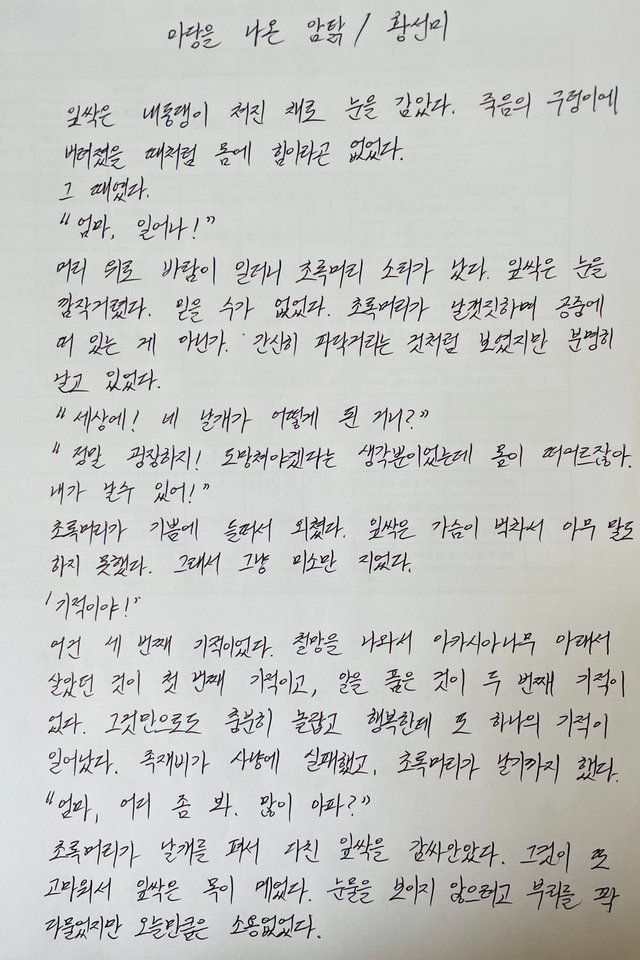 마당을 나온 암탉 / 황선미
잎싹은 내동댕이 쳐진 채로 눈을 감았다. 죽음의 구렁이에
버려졌을 때처럼 몸에 힘이라곤 없었다.
그 때였다.
"엄마, 일어나!"
머리 위로 바람이 일더니 초록머리 소리가 났다. 잎싹은 눈을
깜작거렸다. 믿을 수가 없었다. 초록머리가 날갯짓하며 공중에
떠 있는 게 아닌가. 간신히 파닥거리는 것처럼 보였지만 분명히
날고 있었다.
"세상에! 네 날개가 어떻게 된 거니?"
"정말 굉장하지! 도망쳐야겠다는 생각뿐이었는데 몸이 떠오르잖아.
내가 날수 있어!"
초록머리가 기쁨에 들떠서 외쳤다. 잎싹은 가슴이 벅차서 아무 말도
하지 못했다. 그래서 그냥 미소만 지었다.
'기적이야!'
이건 세 번째 기적이었다. 철망을 나와서 아카시아나무 아래서
살았던 것이 첫 번째 기적이고, 알을 품은 것이 두 번째 기적이
었다. 그것만으로도 충분히 놀랍고 행복한데 또 하나의 기적이
일어났다. 족재비가 사냥에 실패했고, 초록머리가 날기까지 했다.
"엄마, 어디 좀 봐. 많이 아파?"
초록머리가 날개를 펴서 다친 잎싹을 감싸안았다. 그것이 또
고마워서 잎싹은 목이 메었다. 눈물을 보이지 않으려고 부리를 꽉
다물었지만 오늘만큼은 소용없었다.